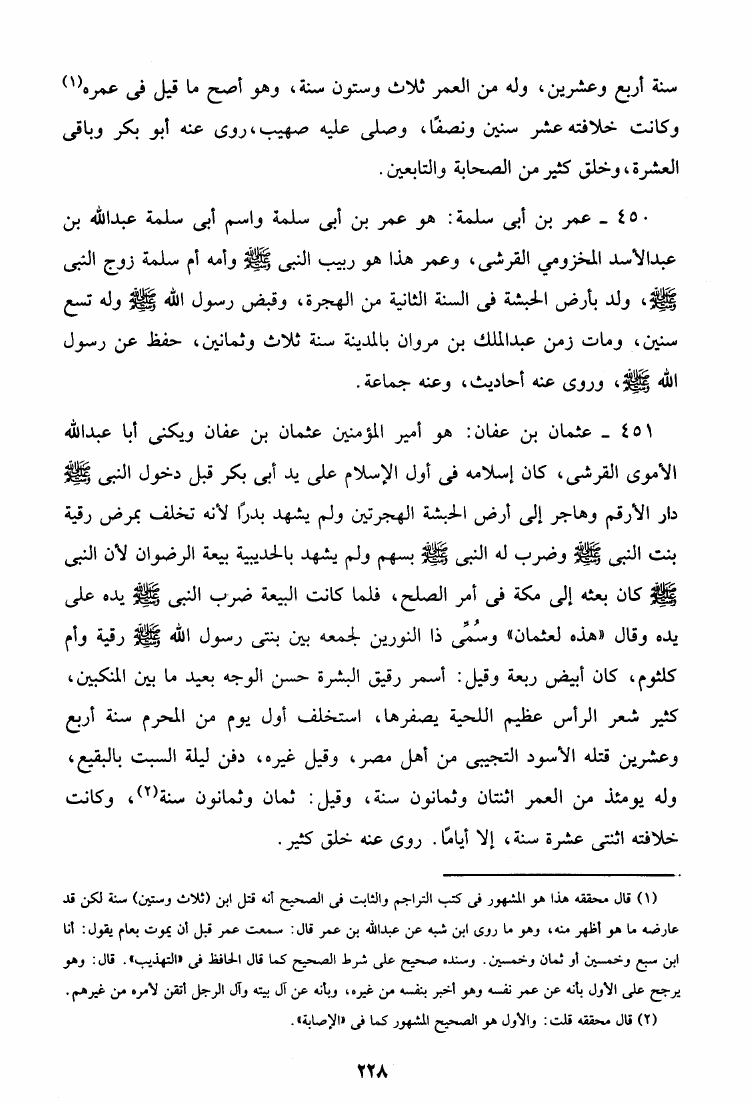 سنة أربع وعشرين، وله من العمر ثلاث وستون سنة، وهو أصح ما قيل فى عمره(١)
وكانت خلافته عشر سنين ونصفًا، وصلى عليه صهيب،روى عنه أبو بكر وباقى
العشرة،وخلق كثير من الصحابة والتابعين.
٤٥٠ ـ عمر بن أبى سلمة: هو عمر بن أبى سلمة واسم أبى سلمة عبدالله بن
عبدالأسد المخزومي القرشى، وعمر هذا هو ربيب النبى ﷺ وأمه أم سلمة زوج النبى
ﷺ، ولد بأرض الحبشة فى السنة الثانية من الهجرة، وقبض رسول الله ﷺ وله تسع
سنين، ومات زمن عبدالملك بن مروان بالمدينة سنة ثلاث وثمانين، حفظ عن رسول
الله ﷺ، وروى عنه أحاديث، وعنه جماعة.
٤٥١ ـ عثمان بن عفان: هو أمير المؤمنين عثمان بن عفان ويكنى أبا عبدالله
الأموى القرشى، كان إسلامه فى أول الإسلام على يد أبى بكر قبل دخول النبى ﷺ
دار الأرقم وهاجر إلى أرض الحبشة الهجرتين ولم يشهد بدرًا لأنه تخلف بمرض رقية
بنت النبى ﷺ وضرب له النبى ﷺ بسهم ولم يشهد بالحديبية بيعة الرضوان لأن النبى
ﷺ كان بعثه إلى مكة فى أمر الصلح، فلما كانت البيعة ضرب النبى ﷺ يده على
يده وقال «هذه لعثمان» وسُمِّى ذا النورين لجمعه بين بنتى رسول الله ﷺ رقية وأم
كلثوم، كان أبيض ربعة وقيل: أسمر رقيق البشرة حسن الوجه بعيد ما بين المنكبين،
كثير شعر الرأس عظيم اللحية يصفرها، استخلف أول يوم من المحرم سنة أربع
وعشرين قتله الأسود التجيبى من أهل مصر، وقيل غيره، دفن ليلة السبت بالبقيع،
وله يومئذ من العمر اثنتان وثمانون سنة، وقيل: ثمان وثمانون سنة(٢)، وكانت
خلافته اثنتى عشرة سنة، إلا أيامًا. روى عنه خلق كثير.
(١) قال محققه هذا هو المشهور فى كتب التراجم والثابت فى الصحيح أنه قتل ابن (ثلاث وستين) سنة لكن قد
عارضه ما هو أظهر منه، وهو ما روى ابن شبه عن عبدالله بن عمر قال: سمعت عمر قبل أن يموت بعام يقول: أنا
ابن سبع وخمسين أو ثمان وخمسين. وسنده صحيح على شرط الصحيح كما قال الحافظ فى «التهذيب». قال: وهو
يرجح على الأول بأنه عن عمر نفسه وهو أخبر بنفسه من غيره، وبأنه عن آل بيته وآل الرجل أتقن لأمره من غيرهم.
(٢) قال محققه قلت: والأول هو الصحيح المشهور كما فى «الإصابة».
٢٢٨